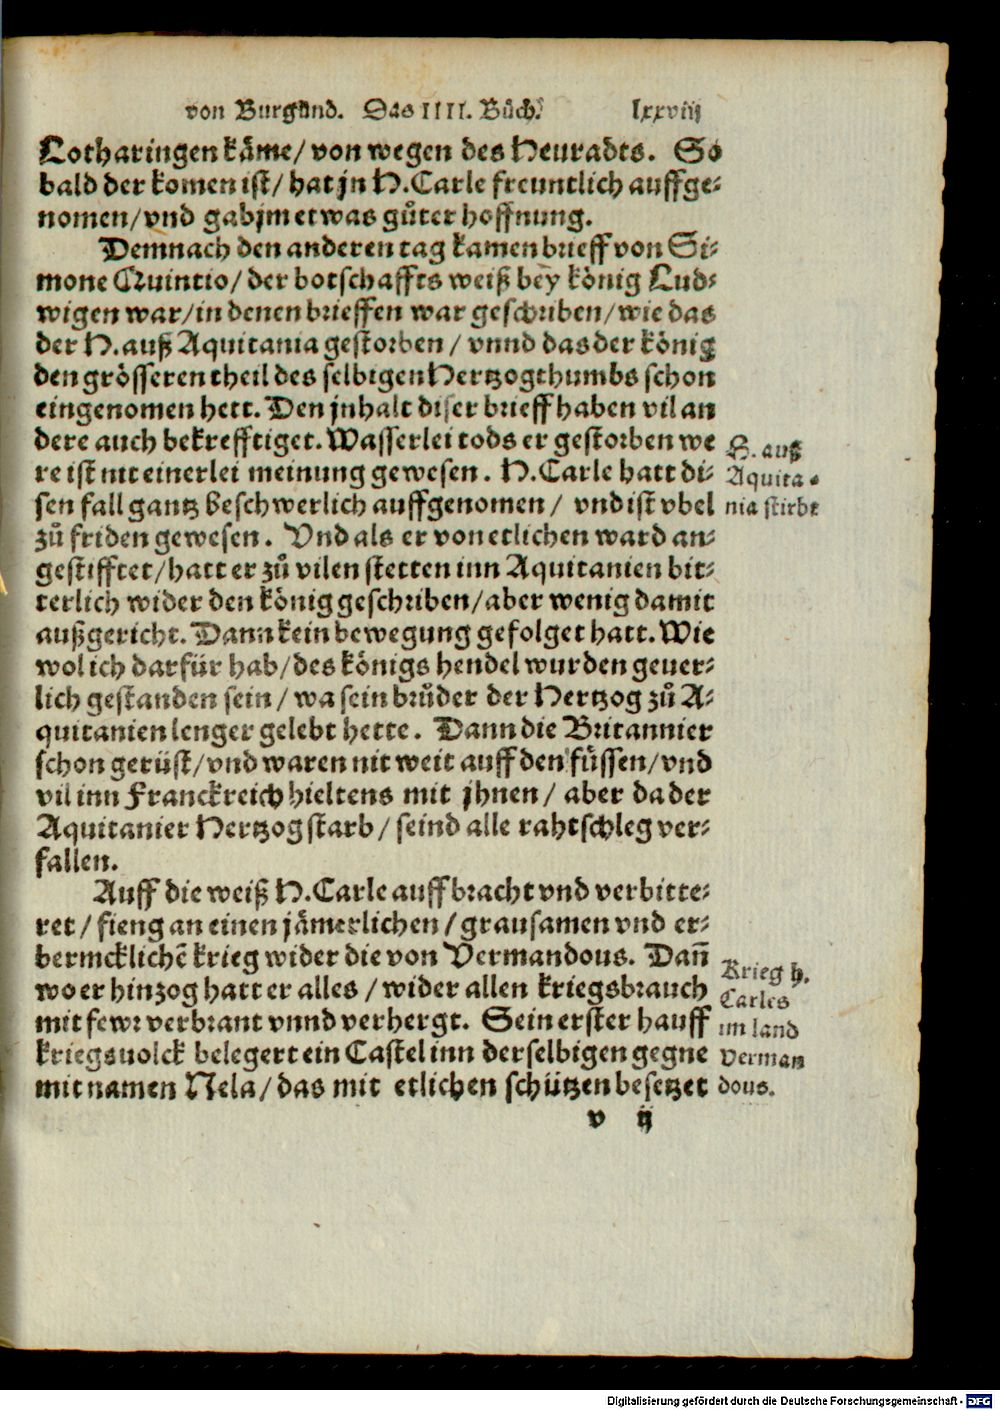 von Burgũnd. Das IIII. Bůch. lxxviij
Lotharingen kâme/ von wegen des Heuradts. So
bald der komen ist/ hat jn H. Carle freuntlich auffge⸗
nomen/ vnd gab jm etwas gůter hoffnung.
Demnach den anderen tag kamen brieff von Si⸗
mone Quintio/ der botschaffts weiß bey könig Lud⸗
wigen war/ in denen brieffen war geschriben/ wie das
der H. auß Aquitania gestorben/ vnnd das der könig
den grösseren theil des selbigen Hertzogthumbs schon
eingenomen hett. Den jnhalt diser brieff haben vil an
dere auch bekrefftiget. Wasserlei tods er gestorben we
re ist nit einerlei meinung gewesen. H. Carle hatt di⸗
sen fall gantz beschwerlich auffgenomen/ vnd ist vbel
zů friden gewesen. Vnd als er von etlichen ward an⸗
gestifftet/ hatt er zů vilen stetten inn Aquitanien bit⸗
terlich wider den könig geschriben/ aber wenig damit
außgericht. Dann kein bewegung gefolget hatt. Wie
wol ich darfür hab/ des königs hendel wurden geuer⸗
lich gestanden sein/ wa sein brůder der Hertzog zů A⸗
quitanien lenger gelebt hette. Dann die Britannier
schon gerüst/ vnd waren nit weit auff den füssen/ vnd
vil inn Franckreich hieltens mit jhnen/ aber da der
Aquitanier Hertzog starb/ seind alle rahtschleg ver⸗
fallen.
Auff die weiß H. Carle auffbracht vnd verbitte⸗
ret/ fieng an einen jämerlichen/ grausamen vnd er⸗
bermcklichẽ krieg wider die von Vermandous. Dañ
wo er hinzog hatt er alles/ wider allen kriegsbrauch
mit fewr verbrant vnnd verhergt. Sein erster hauff
kriegsuolck belegert ein Castel inn derselbigen gegne
mit namen Nela/ das mit etlichen schützen besetzet
v ij
H. auß
Aquita⸗
nia stirbt
Krieg h.
Carles
im land
Verman
dous.
Digitalisierung gefördert durch die Deutsche Forschungsgemeinschaft - DFG